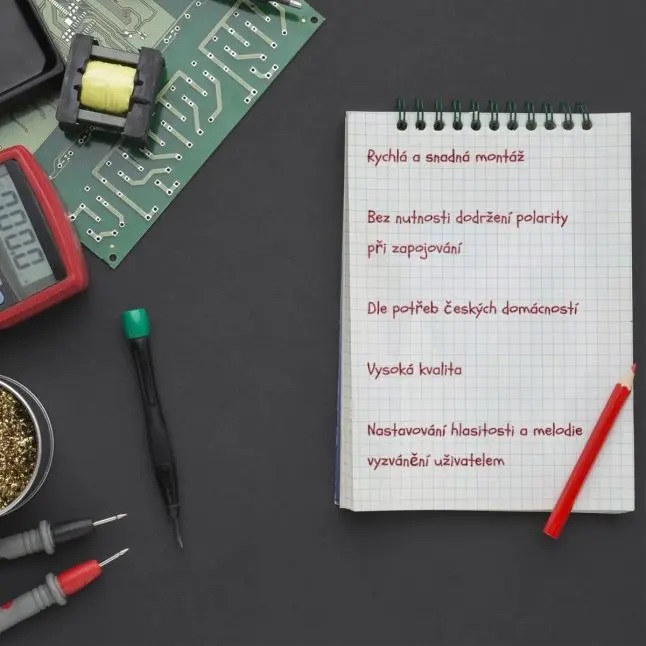 Rychlá a snadná montáž
Bez nutnosti dodržení polarity
při zapojování
Dle potřeb českých domácností
Vysoká kvalita
Nastavování hlasitosti a melodie
vyzvánění uživatelem